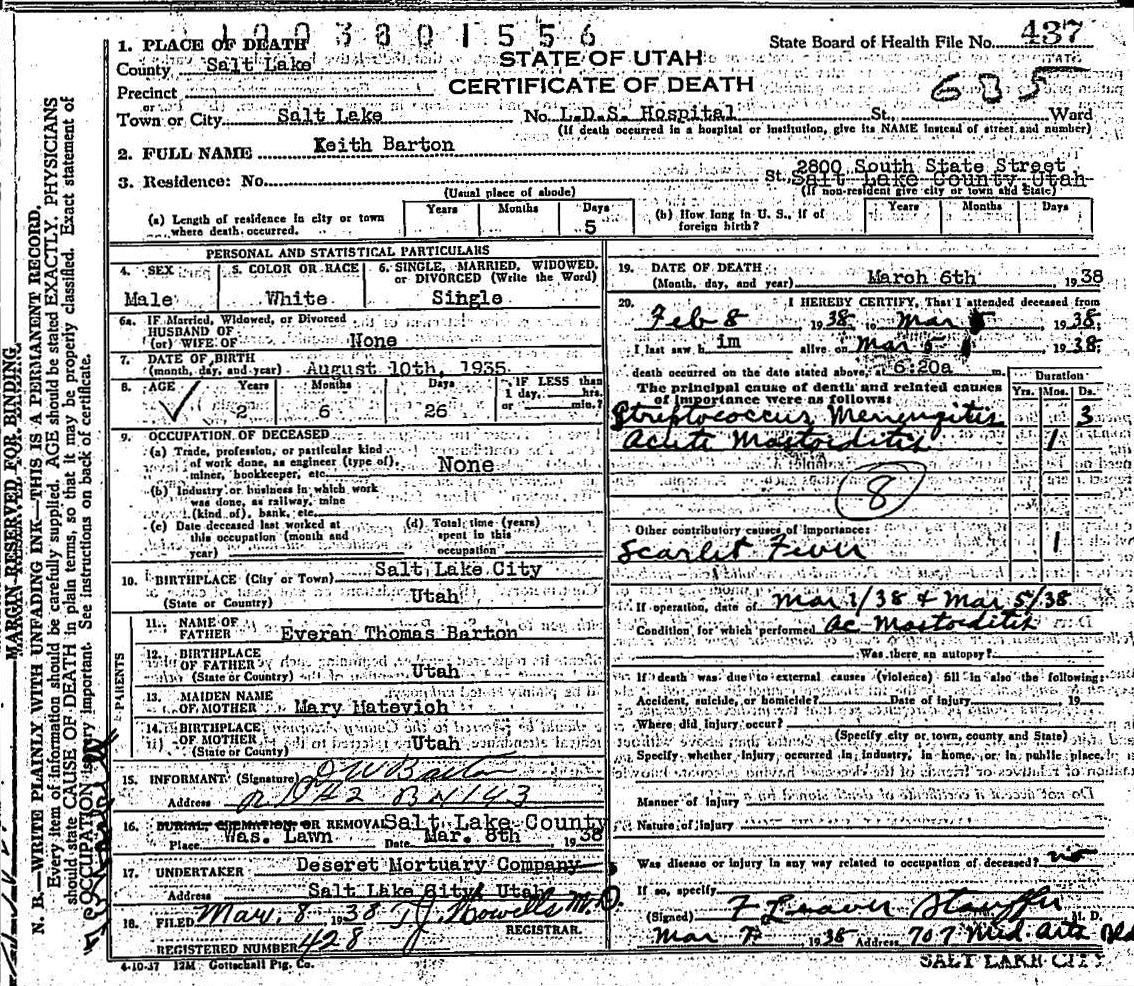 1003801556
State Board of Health File No. 437
STATE OF UTAH
CERTIFICATE OF DEATH
685
1. PLACE OF DEATH
County Salt Lake
Precinct
or
Town or City Salt Lake No. L.D.S. Hospital St. Ward
(If death occurred in a hospital or institution, give its NAME instead of street and number)
2. FULL NAME Keith Barton
2800 South State Street
3. Residence: No. St. Salt Lake County, Utah
(Usual place of abode) (If non-resident give city or town and State)
(a) Length of residence in city or town where death occurred. Years Months Days 5
(b) How long in U. S., if of foreign birth? Years Months Days
PERSONAL AND STATISTICAL PARTICULARS
4. SEX Male
5. COLOR OR RACE White
6. SINGLE, MARRIED, WIDOWED, or DIVORCED (Write the Word) Single
6a. IF Married, Widowed, or Divorced
HUSBAND OF
(or) WIFE OF None
7. DATE OF BIRTH
(month, day, and year) August 10th, 1935
8. AGE Years Months Days IF LESS than
1 day, hrs.
2 6 26 or min.?
9. OCCUPATION OF DECEASED
(a) Trade, profession, or particular kind
of work done, as engineer (type of),
miner, bookkeeper, etc. None
(b) Industry or business in which work
was done, as railway, mine
(kind of), bank, etc.
(c) Date deceased last worked at
this occupation (month and
year)
(d) Total time (years)
spent in this
occupation
10. BIRTHPLACE (City or Town) Salt Lake City
(State or Country) Utah
PARENTS
11. NAME OF
FATHER Everan Thomas Barton
12. BIRTHPLACE
OF FATHER
(State or Country) Utah
13. MAIDEN NAME
OF MOTHER Mary Matevich
14. BIRTHPLACE
OF MOTHER
(State or County) Utah
15. INFORMANT (Signature) J W Barton
Address R D #2 Bx 143
16. BURIAL, CREMATION, OR REMOVAL Salt Lake County
Place Was. Lawn Date Mar. 8th 1938
17. UNDERTAKER Deseret Mortuary Company
Address Salt Lake City, Utah
18. FILED Mar. 8 1938 T J Howells M.D.
REGISTRAR.
REGISTERED NUMBER 428
4-10-37 12M Gottschall Ptg. Co.
19. DATE OF DEATH
(Month, day, and year) March 6th 1938
20. I HEREBY CERTIFY, That I attended deceased from
Feb 8 1938 to Mar 5 1938.
I last saw him alive on Mar 5 1938.
death occurred on the date stated above, at 6:20a m.
Duration
Yrs. Mos. Ds.
The principal cause of death and related causes
of importance were as follows:
Streptococcus Meningitis 3
Acute Mastoiditis 1
8
Other contributory causes of importance:
Scarlet Fever 1
If operation, date of Mar 1/38 & Mar 5/38
Condition for which performed Ac Mastoiditis
Was there an autopsy?
If death was due to external causes (violence) fill in also the following:
Accident, suicide, or homicide? Date of Injury 19
Where did injury occur?
(Specify city or town, county and State)
Specify whether injury occurred in industry, in home, or in public place.
Manner of injury
Nature of injury
Was disease or injury in any way related to occupation of deceased? no
If so, specify
(Signed) F Leaver Stauffer M. D.
Mar 7 1938 Address 707 Med. Arts Bld
SALT LAKE CITY
MARGIN RESERVED FOR BINDING.
N. B.—WRITE PLAINLY WITH UNFADING INK—THIS IS A PERMANENT RECORD.
Every item of information should be carefully supplied. AGE should be stated EXACTLY. PHYSICIANS
should state CAUSE OF DEATH in plain terms, so that it may be properly classified. Exact statement of
OCCUPATION is very important. See instructions on back of certificate.